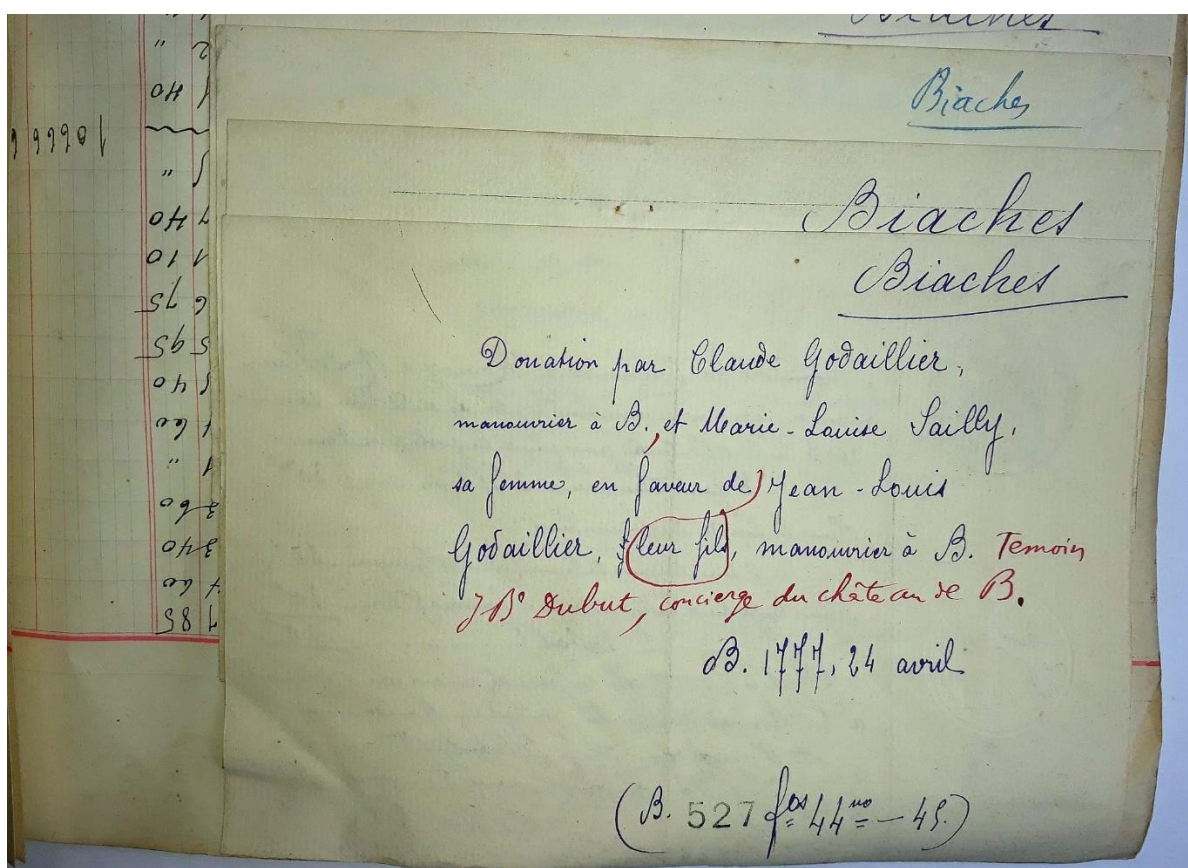 Biaches
Biaches
Biaches
Biaches
Donation par Claude Godaillier,
manouvrier à B., et Marie-Louise Sailly,
sa femme, en faveur de Jean-Louis
Godaillier, leur fils, manouvrier à B. Temoin
J Bte Dubut, concierge du château de B.
B. 1777, 24 avril
(B. 527 fos 44 vo — 45.)
"
2
1 40
10666
5
"
7 40
1 10
6 75
5 95
5 40
1 60
1 "
3 60
3 40
7 60
7 85